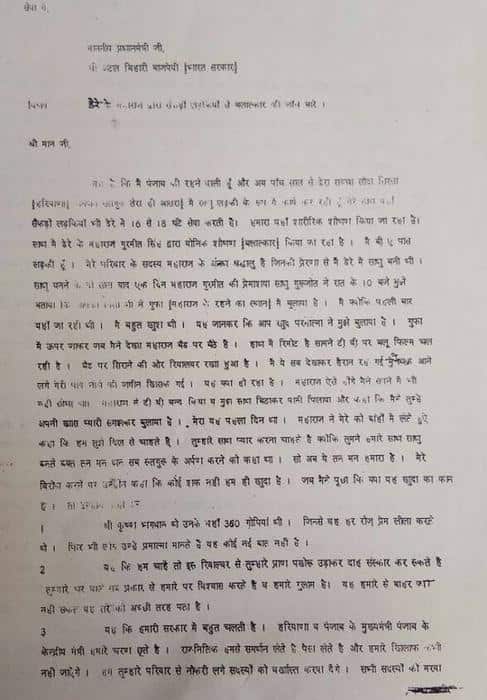 सेवा में,
माननीय प्रधानमंत्री जी,
श्री अटल बिहारी वाजपेयी [भारत सरकार]
विषय डेरे के महाराज द्वारा सैकड़ों लड़कियों से बलात्कार की जाँच बारे ।
श्री मान जी,
यह है कि मैं पंजाब की रहने वाली हूँ और अब पाँच साल से डेरा सच्चा सौदा सिरसा
[हरियाणा] तेरा ही आसरा] में साधु लड़की के रूप में कार्य कर रही हूँ मेरे साथ यहाँ
सैकड़ों लड़कियाँ भी डेरे में 16 से 18 घंटे सेवा करती हैं। हमारा यहाँ शारीरिक शोषण किया जा रहा है।
साथ में डेरे के महाराज गुरमीत सिंह द्वारा यौनिक शोषण [बलात्कार] किया जा रहा है । मैं बी ए पास
लड़की हूँ । मेरे परिवार के सदस्य महाराज के अंधा श्रद्धालु हैं जिनकी प्रेरणा से मैं डेरे में साधु बनी थी ।
साधु बनने के दो साल बाद एक दिन महाराज गुरमीत की प्रेमशिष्या साधु गुरजोत ने रात के 10 बजे मुझे
बताया कि में गुफा [महाराज के रहने का स्थान] में बुलाया है । मैं क्योंकि पहली बार
वहाँ जा रही थी । मैं बहुत खुश थी । यह जानकर कि आप खुद परमात्मा ने मुझे बुलाया है । गुफा
में ऊपर जाकर जब मैंने देखा महाराज बैड पर बैठे हैं । हाथ में रिमोट है सामने टी वी पर ब्लू फिल्म चल
रही है । बैड पर सिराने की ओर रिवाल्वर रखा हुआ है । मैं ये सब देखकर हैरान रह गई मुझे चक्कर आने
लगे मेरे पांव नीचे की जमीन खिसक गई । यह क्या हो रहा है । महाराज ऐसे होंगे मैंने सपने में भी
नहीं सोचा था। महाराज ने टी वी बन्द किया व मुझे साथ बिठाकर पानी पिलाया और कहा कि मैंने तुम्हें
अपनी खास प्यारी समझकर बुलाया है । मेरा यह पहला दिन था । महाराज ने मेरे को बाँहों में लेते हुए
कहा कि हम तुझे दिल से चाहते हैं । तुम्हारे साथ प्यार करना चाहते हैं क्योंकि तुमने हमारे साथ साधु
बनते वक्त तन मन धन सब सतगुरू के अर्पण करने को कहा था । सो अब ये तन मन हमारा है । मेरे
विरोध करने पर उन्होंने कहा कि कोई शक नहीं हम ही खुदा हैं । जब मैंने पूछा कि क्या यह खुदा का काम
है ।
1 श्री कृष्ण भगवान थे उनके यहाँ 360 गोपियां थी । जिनसे वह हर रोज प्रेम लीला करते
थे । फिर भी लोग उन्हें परमात्मा मानते हैं यह कोई नई बात नहीं है ।
2 यह कि हम चाहें तो इस रिवाल्वर से तुम्हारे प्राण पखेरू उड़ाकर दाह संस्कार कर सकते हैं
तुम्हारे घर वाले प्रकार से हमारे पर विश्वास करते हैं व हमारे गुलाम हैं। वह हमारे से बाहर जा
नहीं सकते यह तेरे को अच्छी तरह पता है ।
3 यह कि हमारी सरकार में बहुत चलती है । हरियाणा व पंजाब के मुख्यमंत्री पंजाब के
केन्द्रीय मंत्री हमारे चरण छूते हैं । राजनितिक हमसे समर्थन लेते हैं पैसा लेते हैं और हमारे खिलाफ कभी
नहीं जाएँगे । हम तुम्हारे परिवार से नौकरी लगे सदस्यों को बर्खास्त करवा देंगे । सभी सदस्यों को मरवा